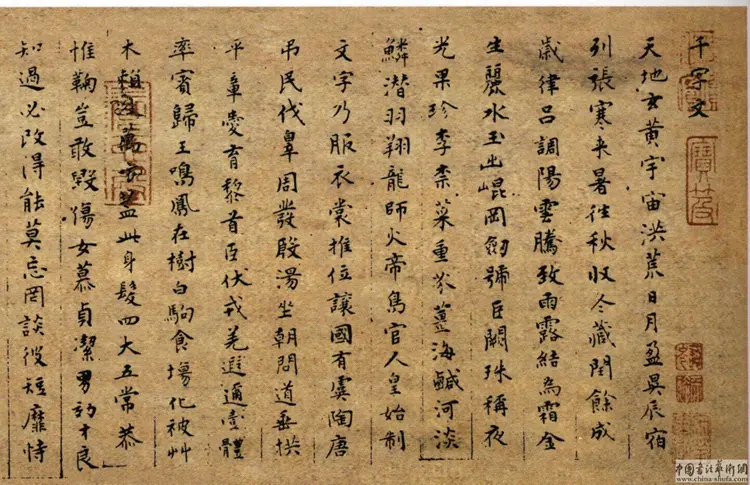 千字文
天地玄黄宇宙洪荒日月盈昃辰宿
列張寒来暑往秋収冬藏閏餘成
歲律呂調陽雲騰致雨露結為霜金
生麗水玉出崐岡劒號巨闕珠稱夜
光果珎李柰菜重芥薑海鹹河淡
鱗潜羽翔龍師火帝鳥官人皇始制
文字乃服衣裳推位讓國有虞陶唐
吊民伐辠周發殷湯坐朝問道垂拱
平章愛育黎首臣伏戎羌遐邇壹體
率賓歸王鳴鳳在樹白駒食場化被艸
木賴及萬方蓋此身髮四大五常恭
惟鞠豈敢毀傷女慕貞潔男効才良
知過必改得能莫忘罔談彼短靡恃
寶笈
中国书法艺术网
www.china-shufa.com